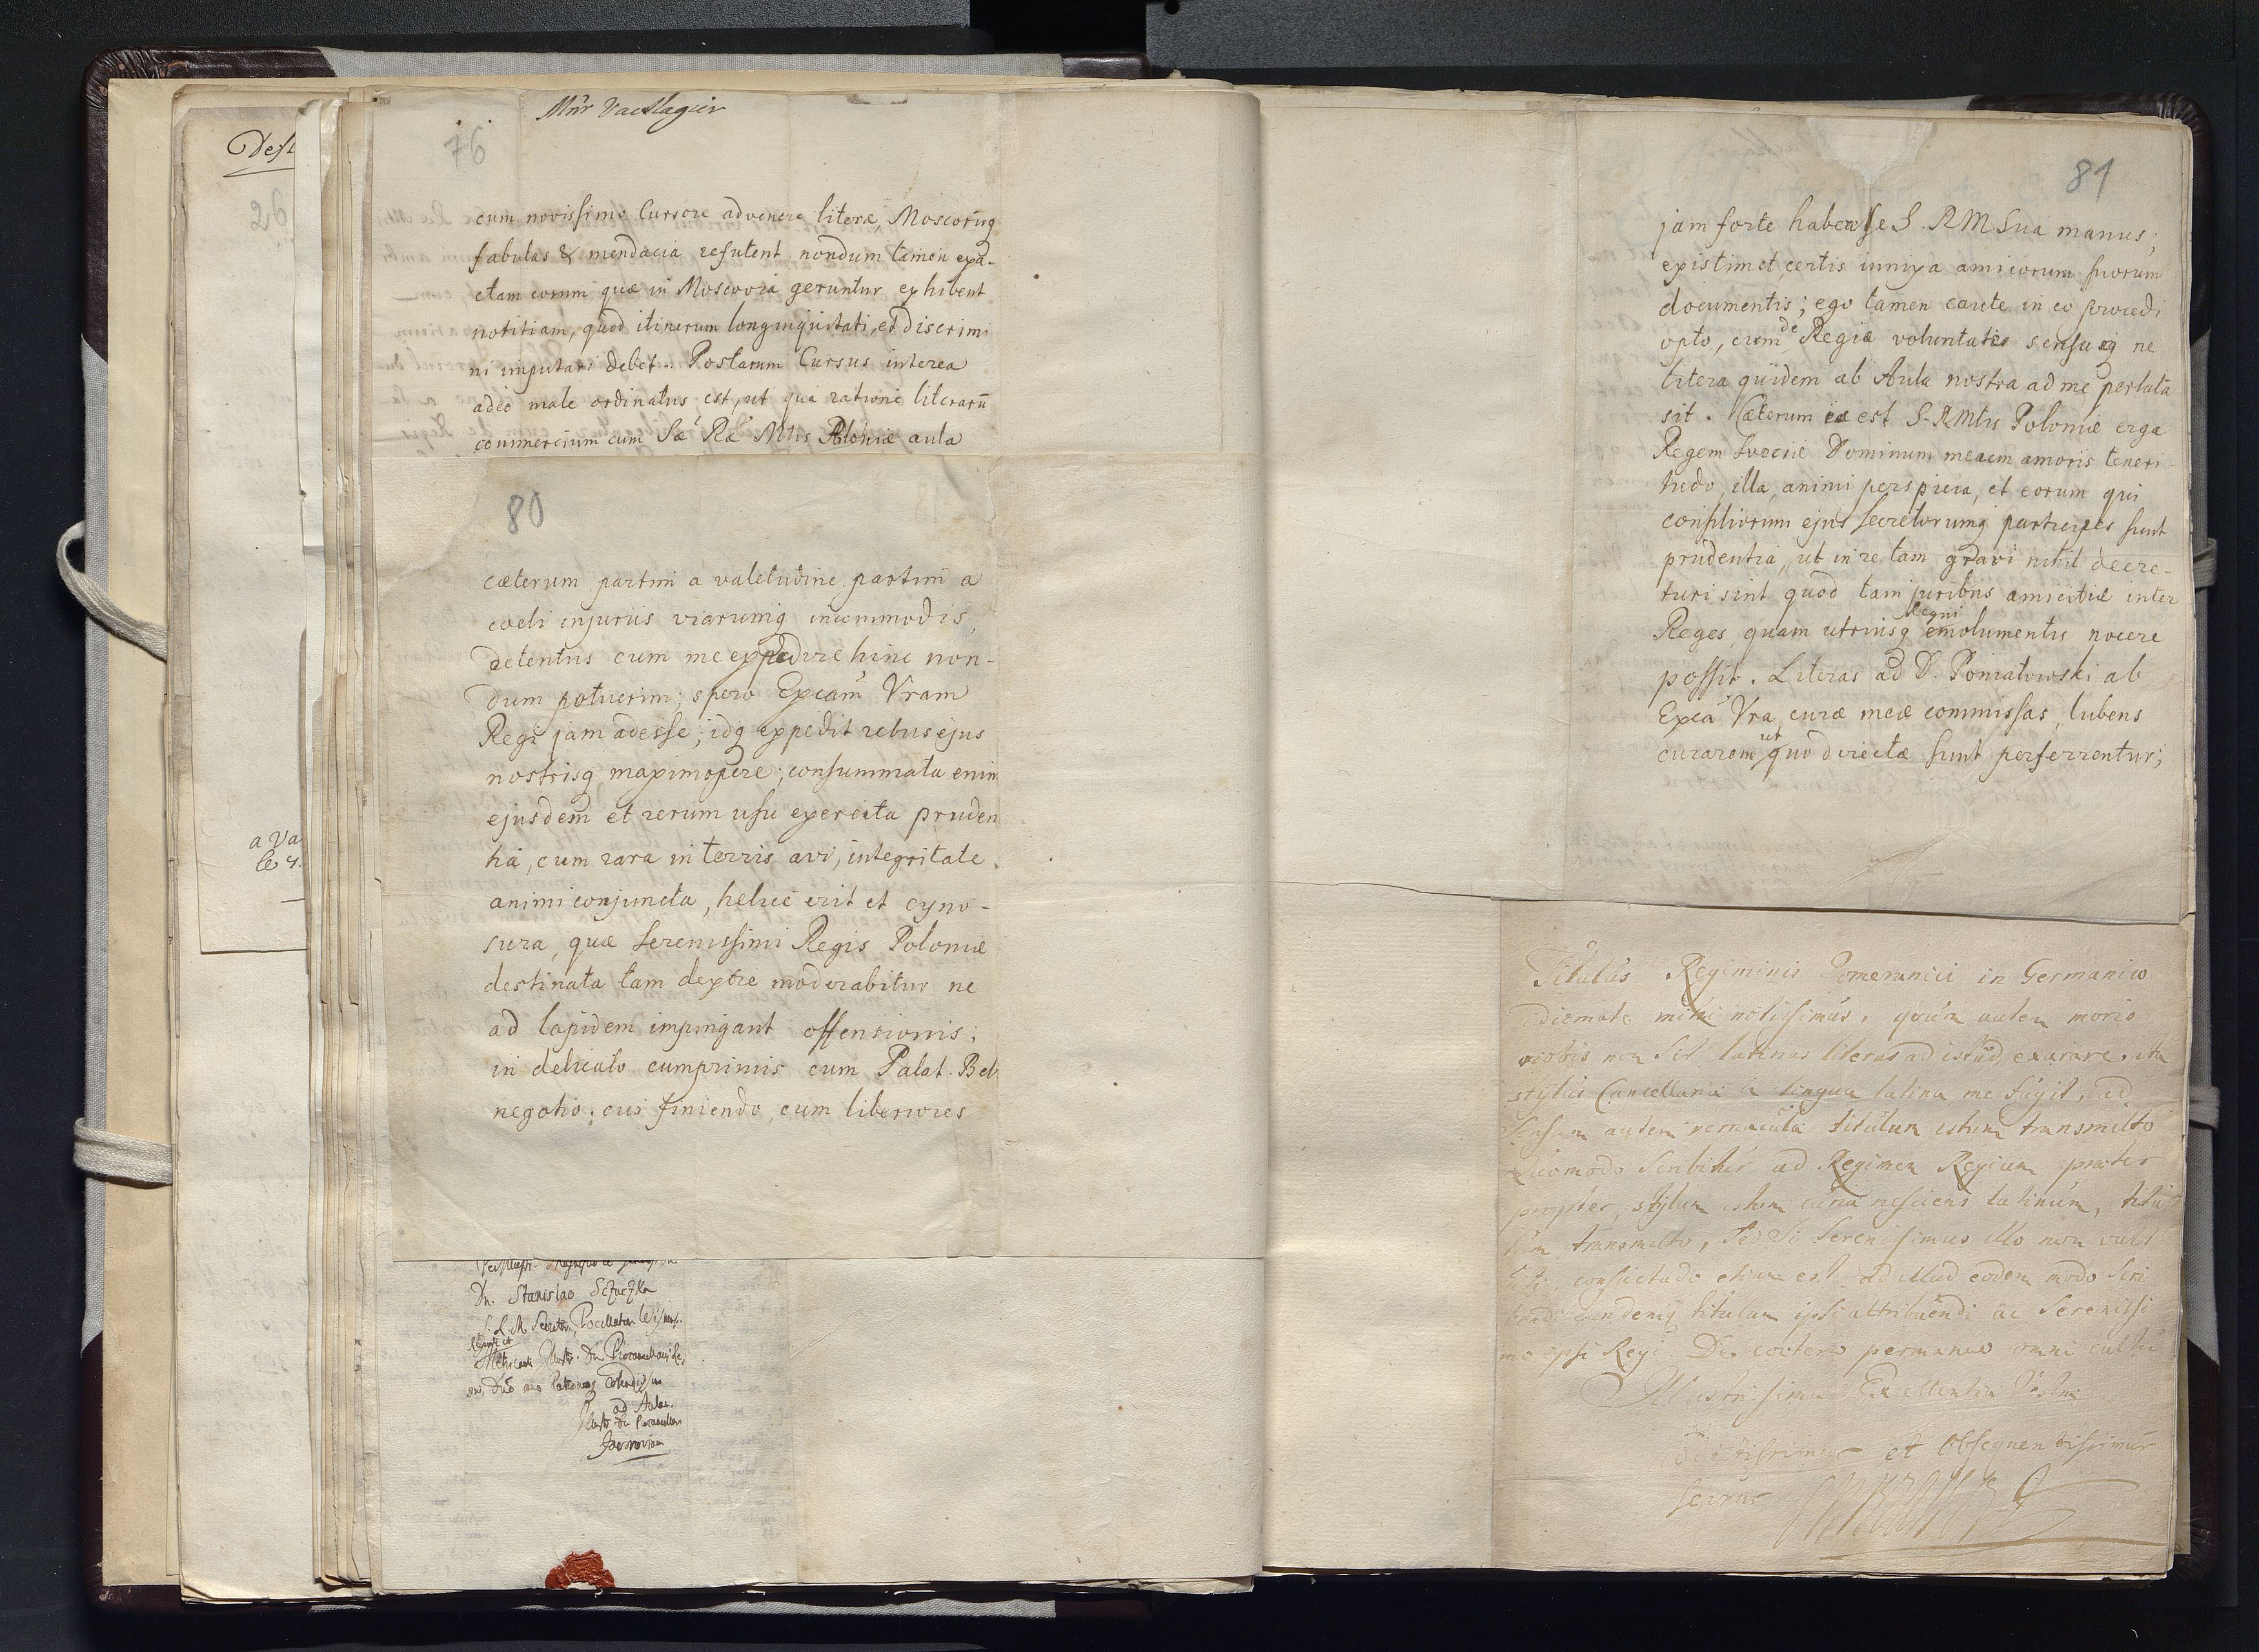 Dest
26
a Va
le 4.
Mnr Vaeslagier
76
cum novissimo Cursore advenere literæ, Moscorūq
fabulas & mendacia refutent, nondum tamen exa-
ctam eorum quæ in Moscovia geruntur exhibent
notitiam, quod itinerum longinquitati, et discrimi
ni imputari debet. Postarum Cursus interea
adeo male ordinatus est, ut qua ratione literarū
commercium cum Sæ Ræ Mtis Poloniæ aula
80
cæterum partim a valetudine partim a
coeli injuriis viarumq incommodis,
detentus cum me expedire hinc non-
dum potuerim; spero Excam Vram
Regi jam adesse; idq expedit rebus ejus
nostrisq maximopere; consummata enim
ejusdem et rerum usu exercita pruden
tia, cum rara in terris avi, integritate
animi conjuncta, helice erit et cyno-
sura, quæ Serenissimi Regis Poloniæ
destinata tam dextre moderabitur ne
ad lapidem impingant offensionis;
in delicato cumprimis cum Palat. Bel
negotio; cui finiendo, cum liberiores
Dn. Stanislao Szczuczka
S. R. M. Secretar
Regenti et
ad Aulam
Javoroviam
81
jam forte habere se S. RM Sua manus;
existimet, certis innixa amicorum suorum
documentis; ego tamen caute in eo procedi
opto, cum de Regiæ voluntatis sensu ej ne
litera quidem ab Aula nostra ad me perlata
sit. Cæterum ea est S. RMtis Poloniæ erga
Regem Sveciæ Dominum meum amoris teneri
tudo, illa, animi perspicua, et eorum qui
consiliorum ejus secretorumq participes sunt
prudentia, ut in re tam gravi nihil decre-
turi sint quod tam juribus amicitiæ inter
Reges, quam utriusq Regni emolumentis nocere
possit. Literas ad D. Poniatowski ab
Exca Vra curæ meæ commissas, lubens
curarem ut quo directæ sunt perferrentur;
Titulus Regiminis Pomeranici in Germanico
idiomate mihi notissimus, quum autem moris
vobis non sit latinas literas ad istud exarare, ita
stylus Cancellariæ in lingua latina me fugit, ad
sensum autem vernacula titulum istum transmitto
Quomodo scribitur ad Regimen Regium, præter
propter, stylum istum curiæ nesciens latinum, titu
lum transmitto, Sed si Serenissimus illo non vult
uti, consuetudo etiam est, ad illud eodem modo scri
bendi eundemq titulum ipsi attribuendi ac Serenissi
mo ipsi Regi. De coetero permaneo omni cultu
Illustrissimæ Excellentiæ Vestræ
et Obsequentissimus
servus